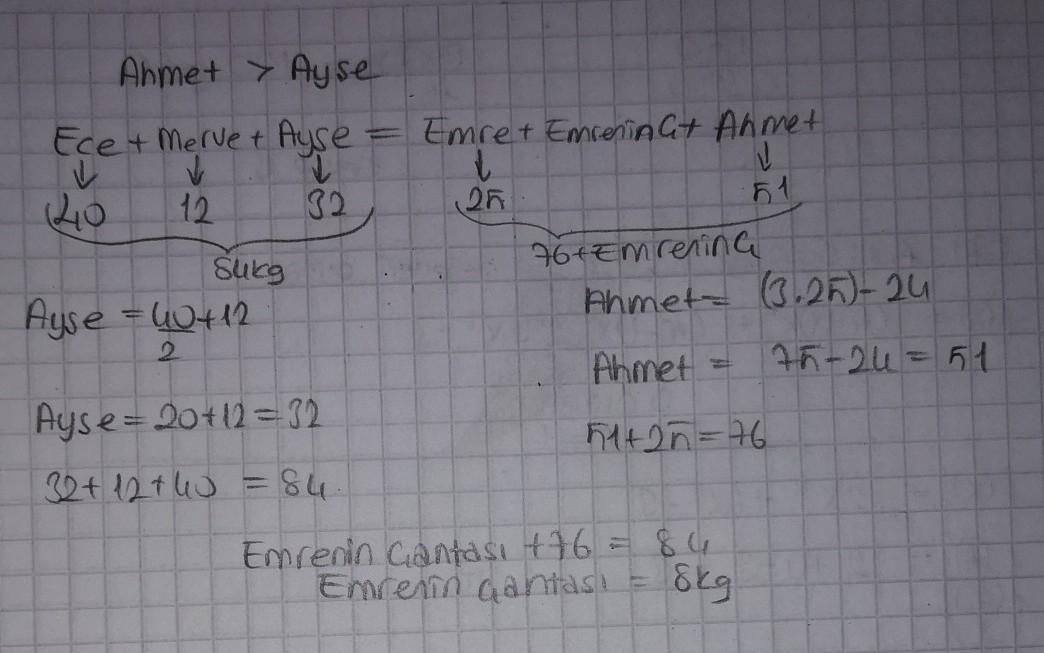 Ahmet > Ayse
Ece + Merve + Ayse = Emre + Emrenin Ç + Ahmet
↓ ↓ ↓ ↓ ↓
40 12 32 25 51
84kg 76+Emrenin Ç
Ayse = 40/2 + 12
Ahmet = (3.25) - 24
Ahmet = 75 - 24 = 51
Ayse = 20+12 = 32
51+25 = 76
32+12+40 = 84
Emrenin Çantası + 76 = 84
Emrenin Çantası = 8kg